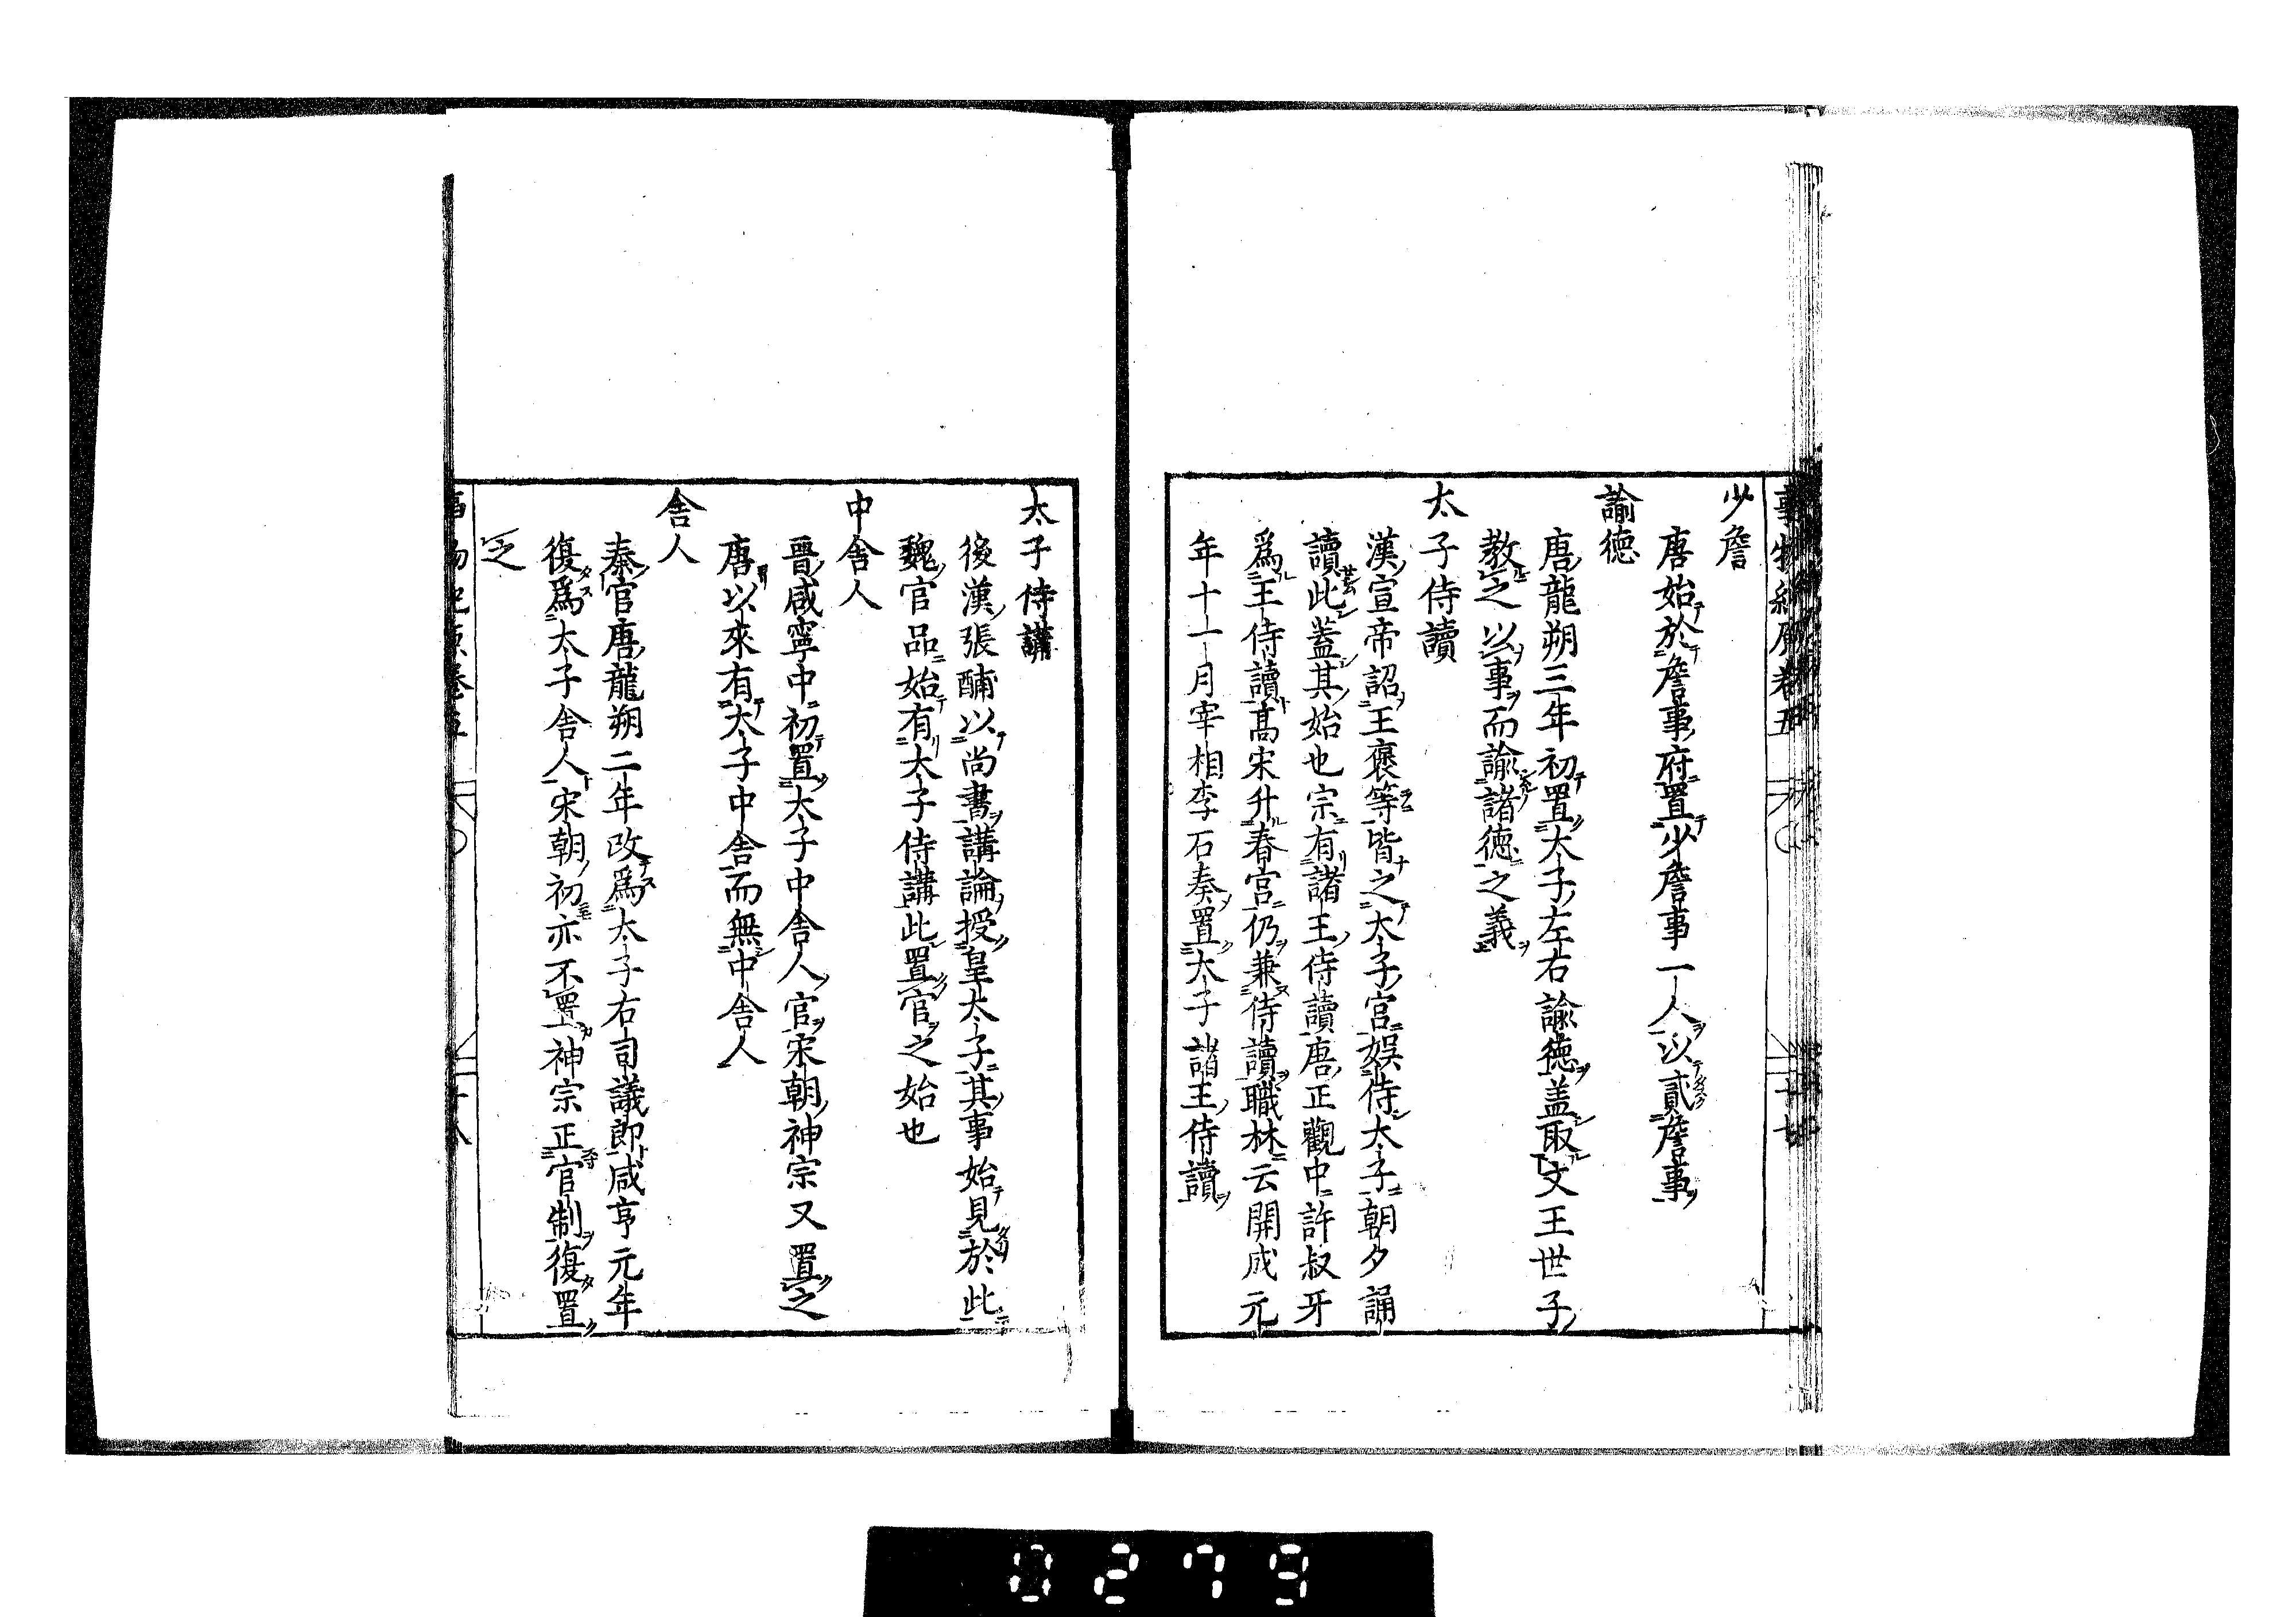 少詹
唐始於詹事府置少詹事一人以貳詹事
諭德
唐龍朔三年初置太子左右諭德蓋取文王世子
教之以事而諭諸德之義
太子侍讀
漢宣帝詔王褒等皆之太子宮娛侍太子朝夕誦
讀此蓋其始也宗有諸王侍讀唐正觀中許叔牙
為王侍讀高宋升春宮仍兼侍讀職林云開成元
年十一月宰相李石奏置太子諸王侍讀
太子侍講
後漢張酺以尚書講論授皇太子其事始見於此
魏官品始有太子侍講此置官之始也
中舍人
晉咸寧中初置太子中舍人官宋朝神宗又置之
唐以來有太子中舍而無中舍人
舍人
秦官唐龍朔二年改為太子右司議郎咸亨元年
復為太子舍人宋朝初亦不置神宗正官制復置
之
0279